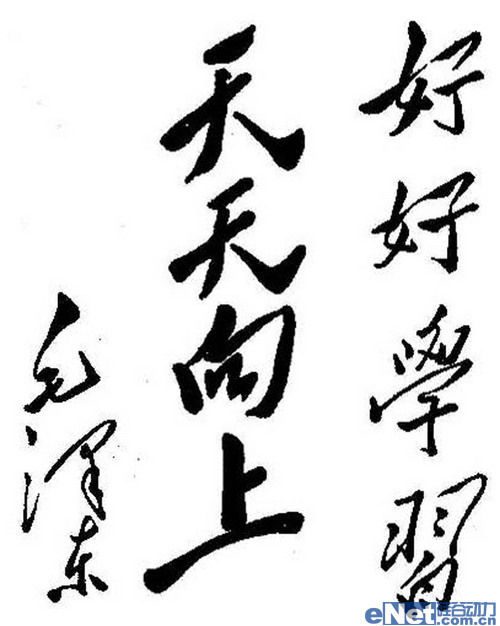 好好學習
天天向上
毛澤东
eNet硅谷动力
.com.cn